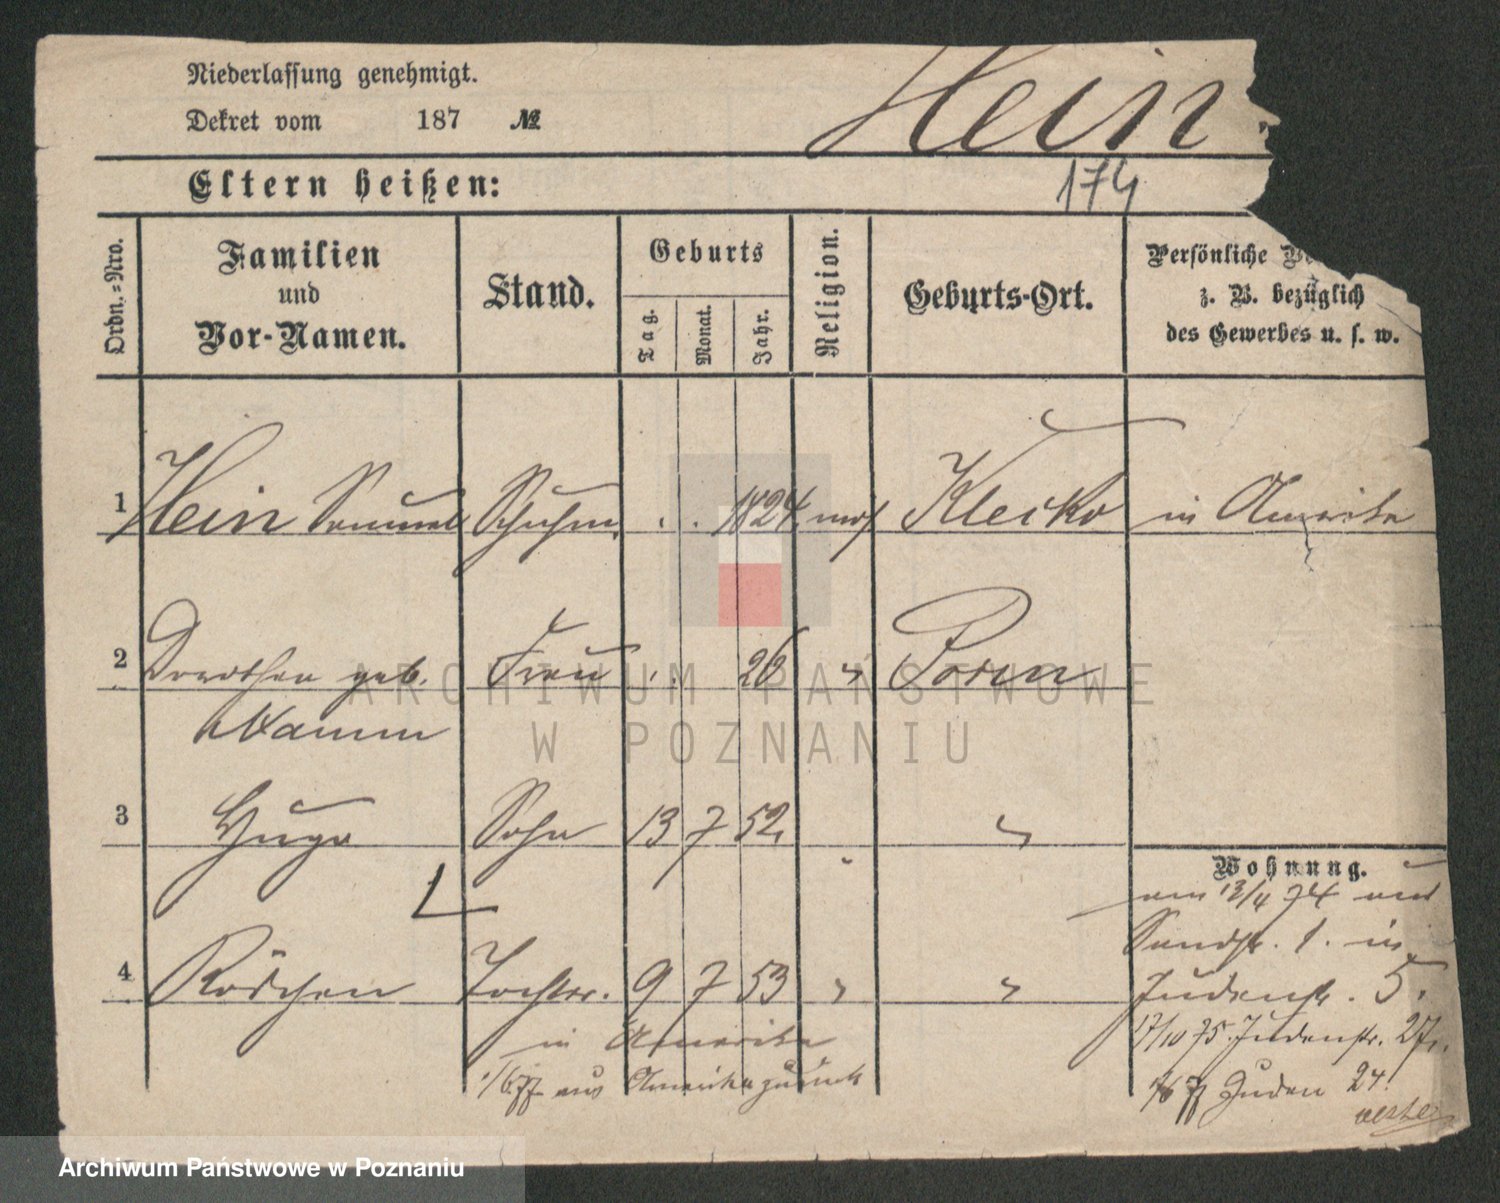 Niederlassung genehmigt.
Hein.
Dekret vom 187 №
Eltern heißen:
174
Ordn.=Nro.
Familien
und
Vor-Namen.
Stand.
Geburts
Tag.
Monat.
Jahr.
Religion.
Geburts-Ort.
Persönliche
z. B. bezüglich
des Gewerbes u. s. w.
1 Hein Samuel Schuhm. . . 1824. mos Klecko in Amerika
2 Dorothea geb. Frau . . 26 " Posen
Wamm
3 Hugo Sohn 13 7 52. "
Wohnung.
am 13/4 74 aus
Sandstr. 1. in
4 Röschen Tochter. 9 7 53 " "
Judenstr. 5.
in Amerika
17/10 75. Judenstr. 27.
1/6 77 aus Amerika zurück
1/6 77 Juden 24.
ARCHIWUM PAŃSTWOWE
W POZNANIU
Archiwum Państwowe w Poznaniu